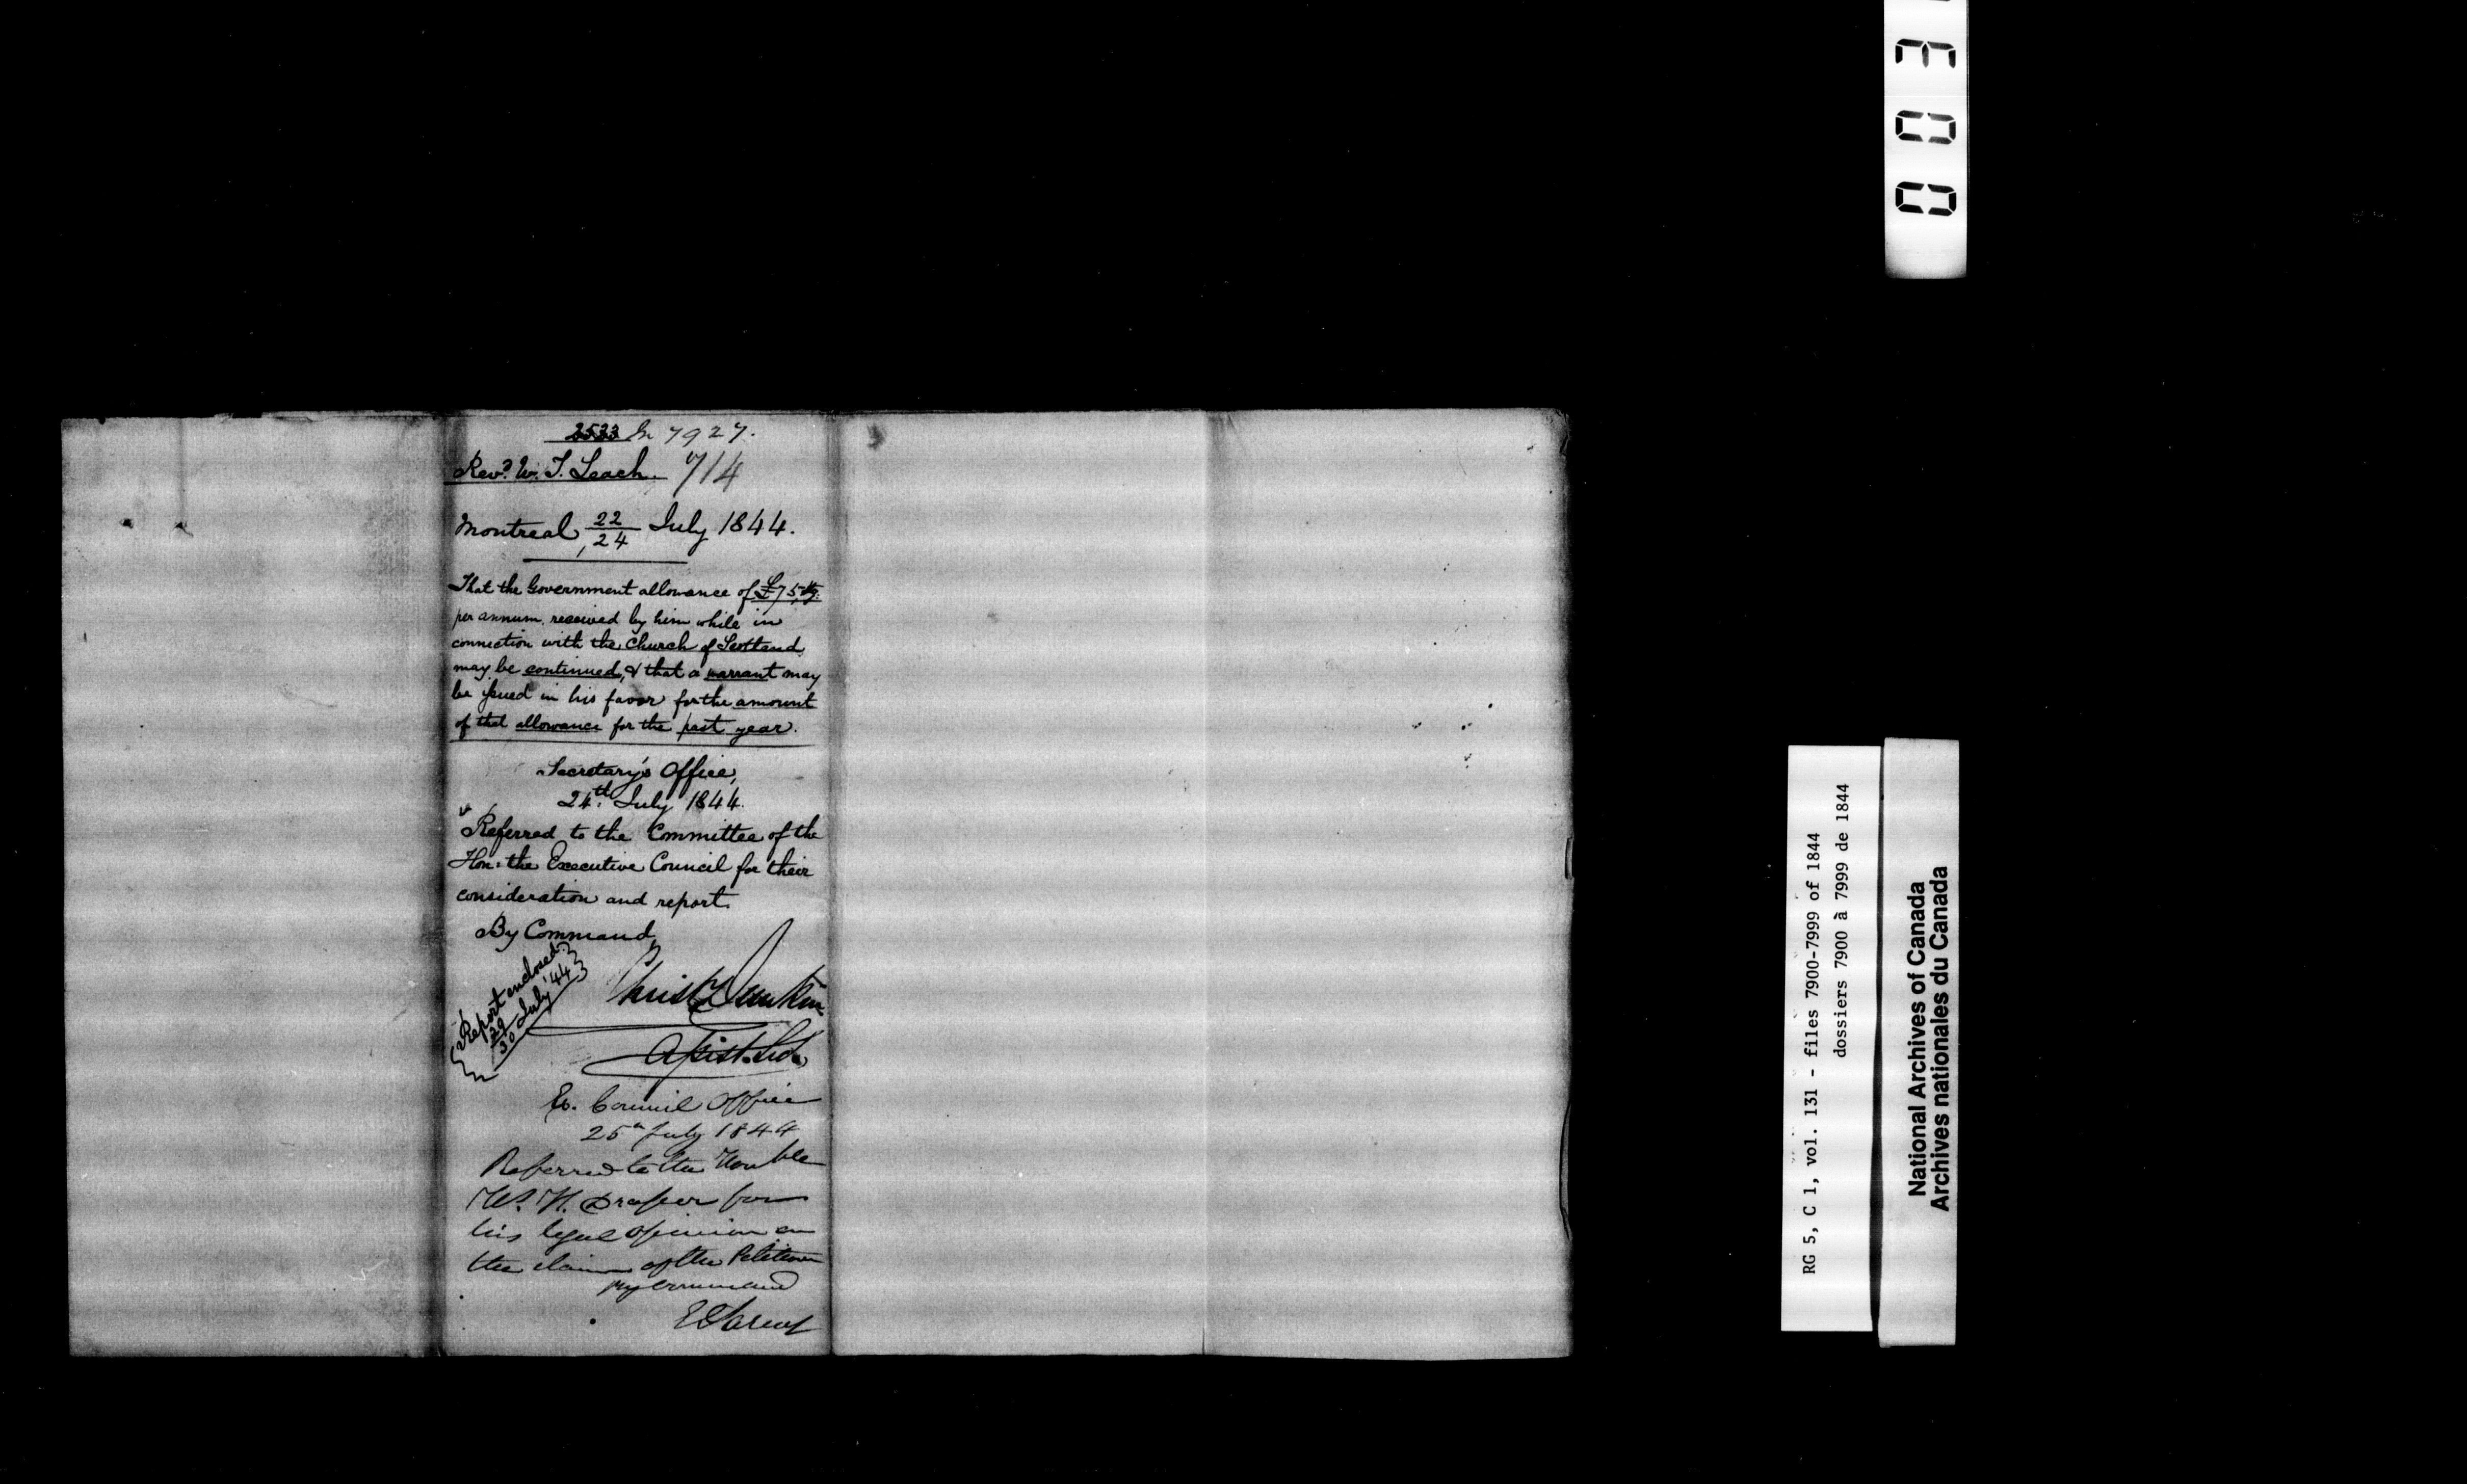 2533 In 7927.
Revd. W. T. Leach. 714
Montreal, 22/24 July 1844.
That the Government allowance of £75 Stg.
per annum, received by him while in
connection with the Church of Scotland,
may be continued, & that a warrant may
be issued in his favor for the amount
of that allowance for the past year.
Secretary's Office,
24th. July 1844.
Referred to the Committee of the
Hon: the Executive Council for their
consideration and report.
By Command,
Christr Dunkin
Assist. Secy
Report enclosed.
29/30 July '44
Ex. Council Office
25th July 1844
Referred to the Honble
W. H. Draper for
his legal opinion on
the claim of the Petitioner
By command
E Parent
E 0 0
RG 5, C 1, vol. 131 - files 7900-7999 of 1844
dossiers 7900 à 7999 de 1844
National Archives of Canada
Archives nationales du Canada